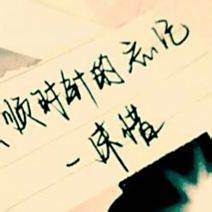 顺时针的忘记
一味惜